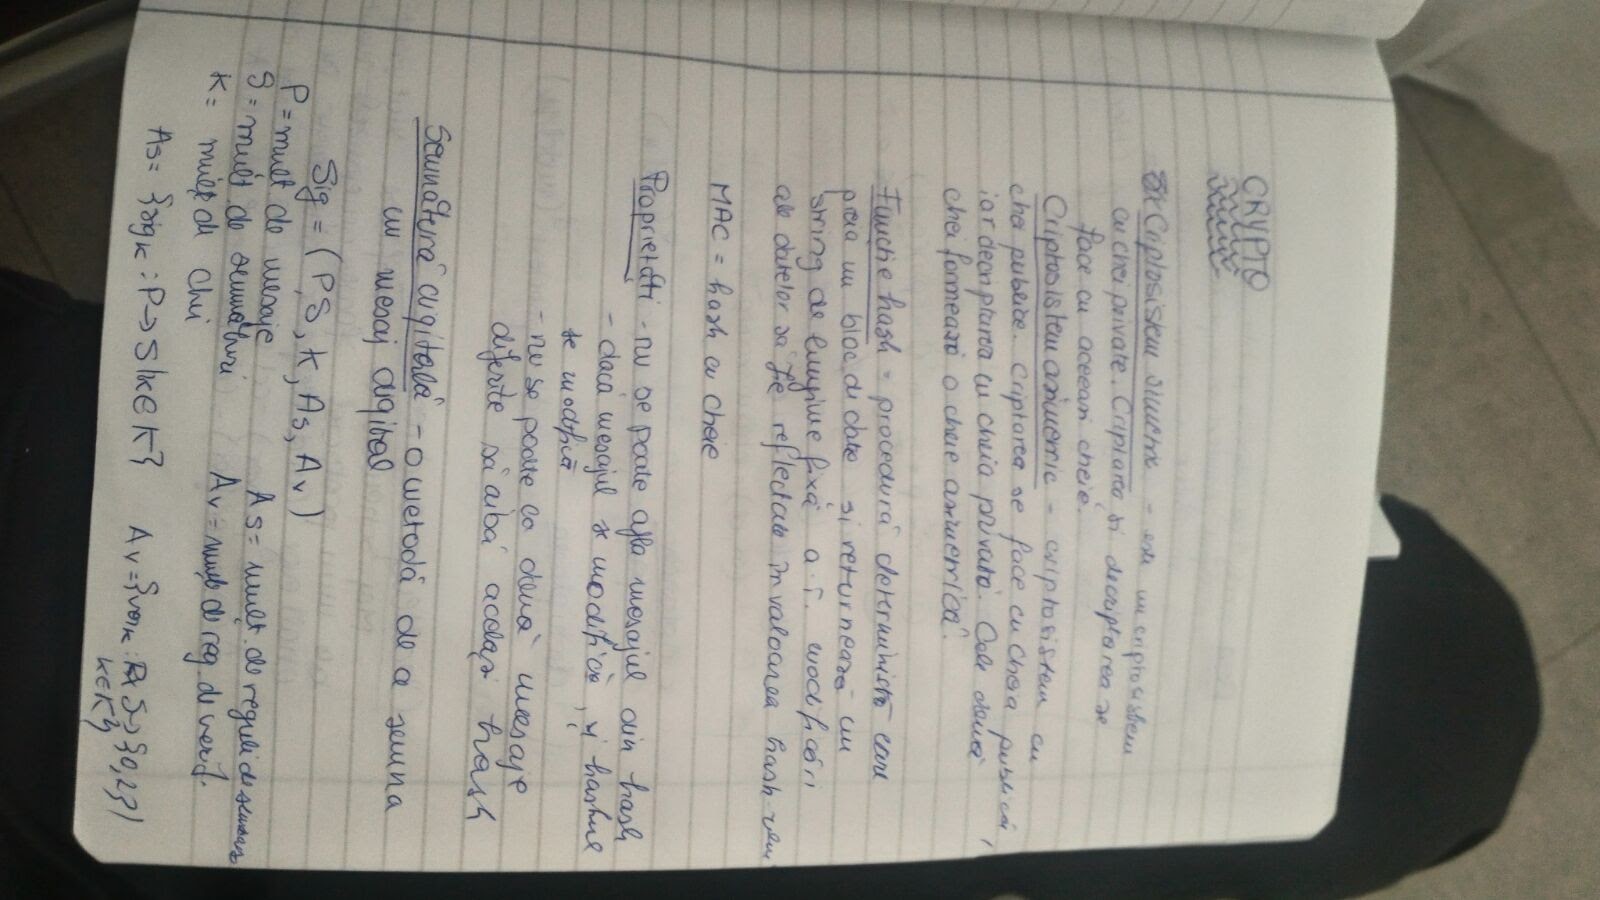 CRYPTO
Criptosistem simetric - este un criptosistem
cu chei private. Criptarea și decriptarea se
face cu aceeași cheie.
Criptosistem asimetric - criptosistem cu
chei publice. Criptarea se face cu cheia publică,
iar decriptarea cu cheia privată. Cele două
chei formează o cheie asimetrică.
Funcție hash = procedură deterministă care
preia un bloc de date și returnează un
string de lungime fixă a.î. modificări
ale datelor să fie reflectate în valoarea hash-ului
MAC = hash cu cheie
Proprietăți - nu se poate afla mesajul din hash
- dacă mesajul se modifică, și hashul
se modifică
- nu se poate ca două mesaje
diferite să aibă același hash
Semnătură digitală - o metodă de a semna
un mesaj digital
Sig = (P, S, K, As, Av)
P = mulț de mesaje
S = mulț de semnături
As = mulț. de reguli de semnare
K = mulț de chei
Av = mulț de reg de verif.
As = {sigk : P → S | k ∈ K}
Av = {verk : P x S → {0,1} |
k ∈ K}